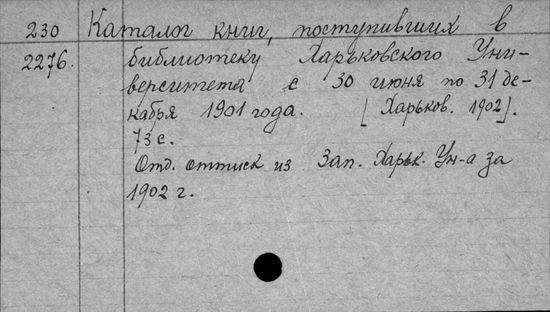 230 Каталог книг, поступивших в
2276. библиотеку Харьковского Уни-
верситета с 30 июня по 31 де-
кабря 1901 года. [Харьков. 1902].
73 с.
Отд. оттиск из Зап. Харьк. Ун-а за
1902 г.